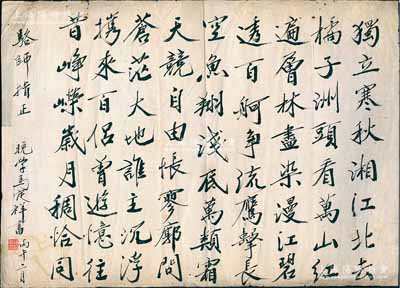 獨立寒秋湘江北去
橘子洲頭看萬山紅
遍層林盡染漫江碧
透百舸争流鷹擊長
空魚翔淺底萬類霜
天競自由悵寥廓問
蒼茫大地誰主沉浮
携來百侣曾遊憶往
昔崢嶸歲月稠恰同
駱師 指正
晚学 祥書 丙十二月